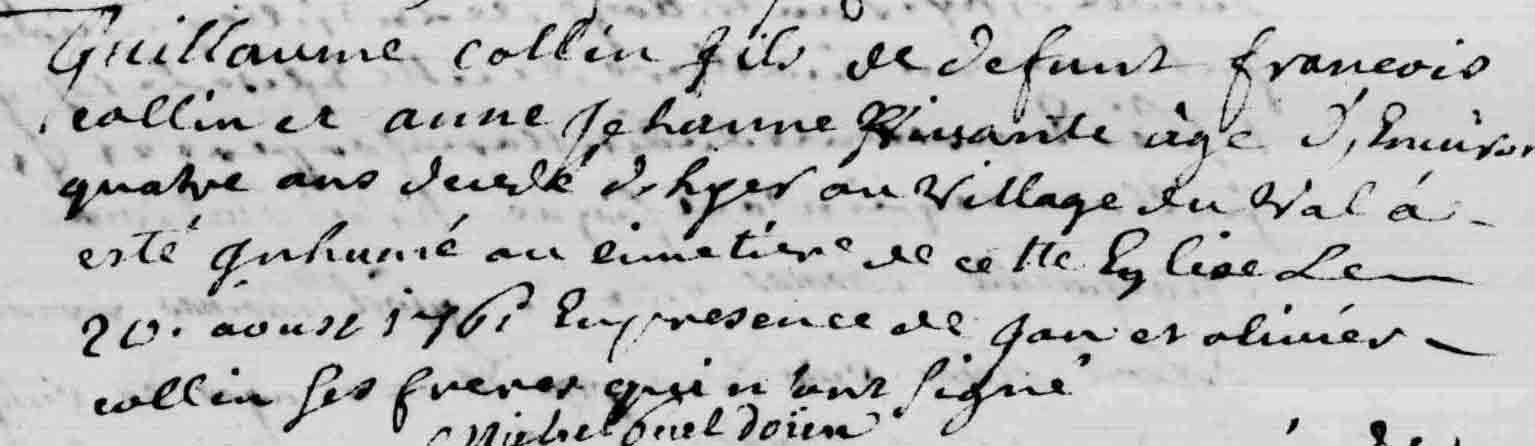 Guillaume collin fils de defunt francois
collin et anne Jehanne âgé d'Environ
quatre ans decedé d'hyer au village du Val á
esté Inhumé au cimetiere de cette Eglise Le
20. áoust 1761 En presence de Jan et olivier
collin ses freres qui n'ont signé
Michel doüen